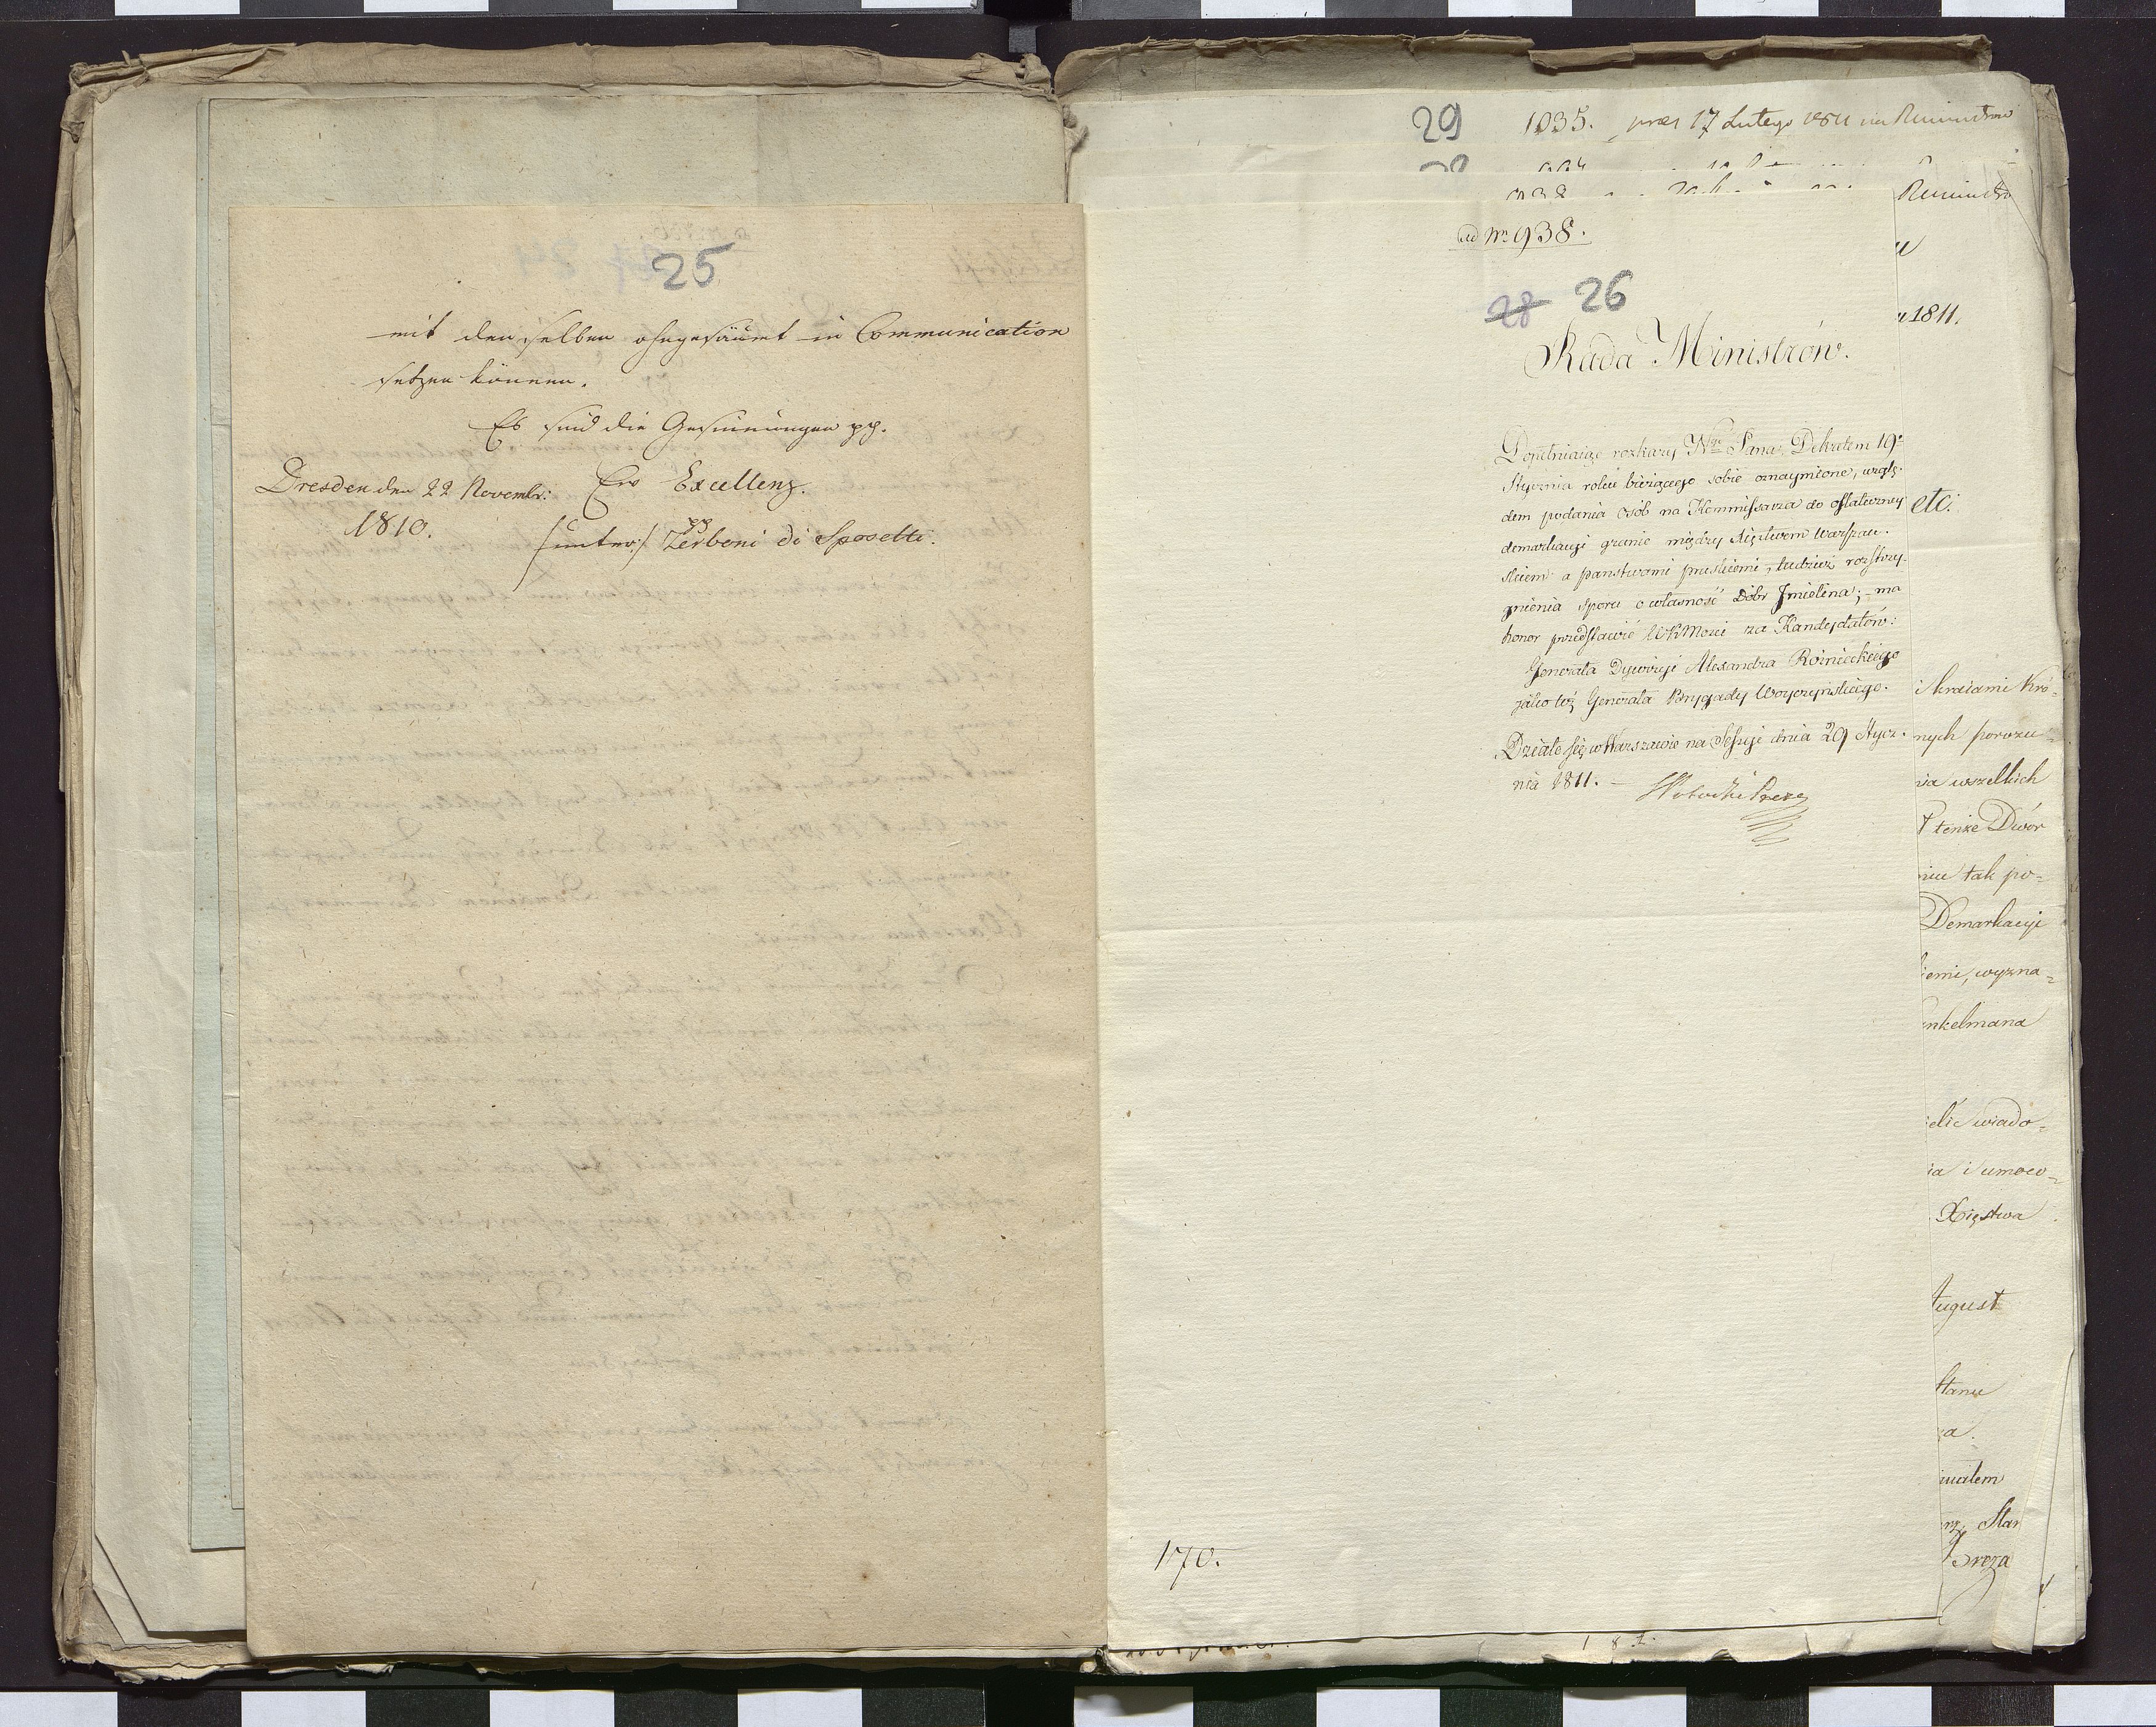 25
mit denselben ohngesäumt in Communication
setzen können.
Es sind die Gesinnungen pp.
Dresden den 22 Novembr: Ew Excellenz.
1810.
/:unterz:/ Zerboni di Sposetti.
29 1035. prez 17 Lutego 1811 na
ad Nro 938.
28 26
Rada Ministrów.
Dopełniaiąc rozkazy Nygo Pana, Dekretem 19.
Stycznia roku bieżącego sobie oznaymione, wzglę-
dem podania osób na Kommissarza do ostateczney
demarkacyi granic między Xięstwem Warszaw-
skiem a państwami pruskiemi, tudzież rozstrzy-
gnienia sporu o własność Dóbr Jmielina; - ma
honor przedstawić WKMości za Kandydatów:
Generała Dywizyi Alexandra Rożnieckiego
jako też Generała Brygady Woyczyńskiego.
Działo się w Warszawie na Sessyi dnia 29 Stycz-
nia 1811. -
170.
u 1811.
etc:
i kraiami Kró-
nych porozu-
nia wszelkich
tenże Dwór
nie tak po-
Demarkacyi
iemi, wyzna-
nkelmana
elić wiado-
ia i umoco-
Xięstwa
August
Stanu
za.
Star
Breza